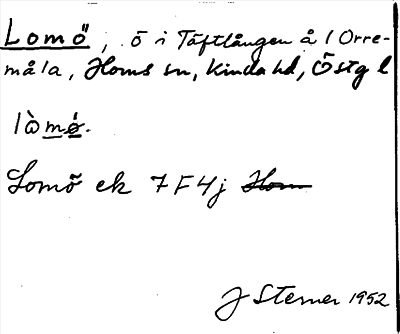 Lomö, ö i Täftlången å l Orre-
måla, Horns sn, Kinda hd, Östg l
lòmö.
Lomö ek 7 F 4j Horn
J Sterner 1952